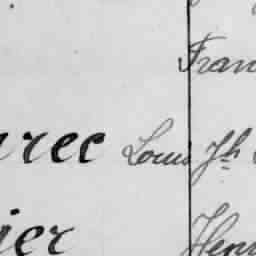 Fran
urec Louis Jh
ier Henr